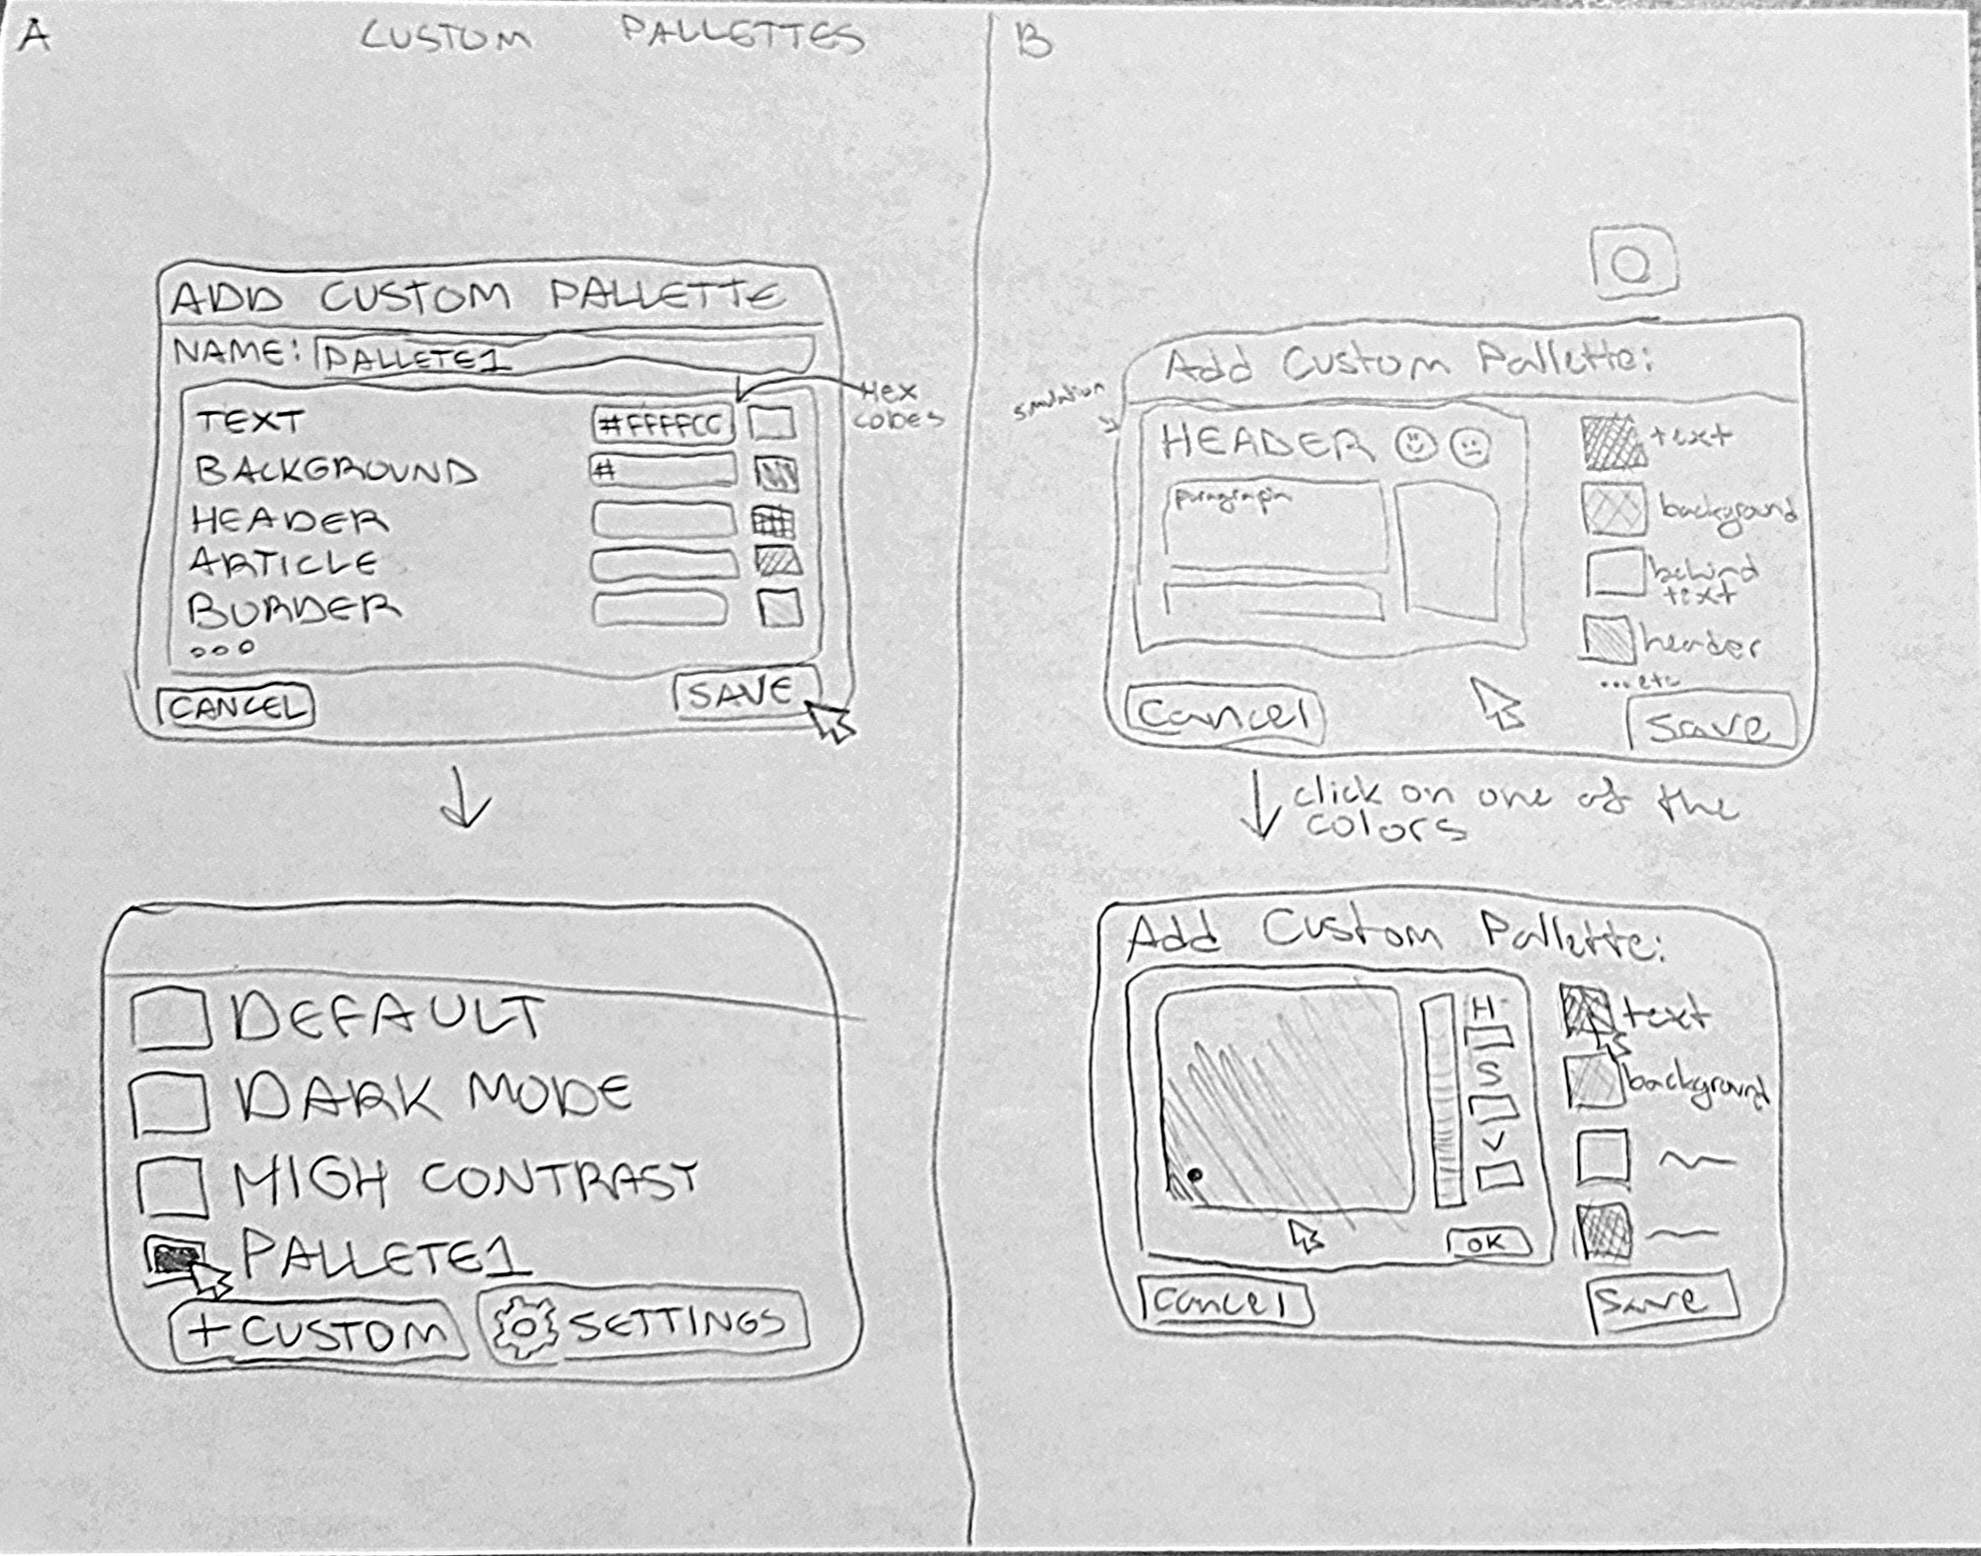 A
CUSTOM PALLETTES
ADD CUSTOM PALLETTE
NAME: PALLETE1
TEXT #FFFFCC
HEX CODES
BACKGROUND #
HEADER
ARTICLE
BORDER
ooo
CANCEL SAVE
DEFAULT
DARK MODE
HIGH CONTRAST
PALLETE1
+CUSTOM SETTINGS
B
Add Custom Pallette:
simulation
HEADER
paragraph
text
background
behind
text
header
...etc
Cancel Save
click on one of the
colors
Add Custom Pallette:
H
S
V
OK
text
background
Cancel Save